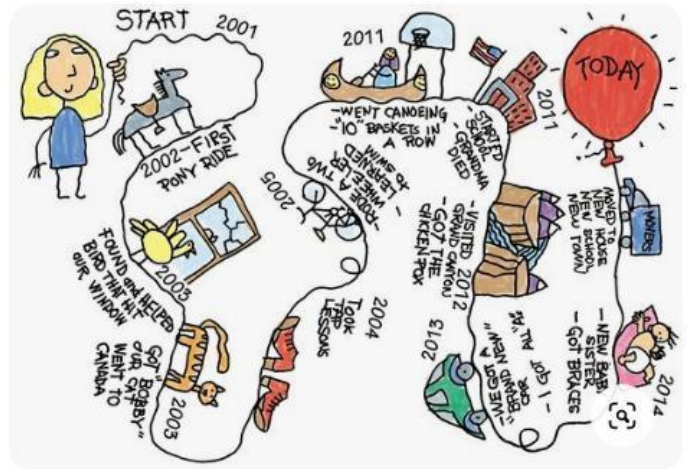 START
2001
2002-FIRST
PONY RIDE
2003
FOUND AND HELPED
BIRD THAT HIT
OUR WINDOW
2003
GOT "BOBBY"
OUR CAT
WENT TO
CANADA
2004
TOOK
TAP
LESSONS
2005
-RODE A TWO
WHEELER
-LEARNED
TO SWIM
2011
-WENT CANOEING
-"10" BASKETS IN
A ROW
2011
-STARTED
SCHOOL
-GRANDMA
DIED
2012
-VISITED
GRAND CANYON
-GOT THE
CHICKEN POX
2013
-WE GOT A
"BRAND NEW"
CAR
-I GOT ALL "A'S"
2014
-NEW BABY
SISTER
-GOT BRACES
MOVED TO
NEW HOUSE
NEW SCHOOL
NEW TOWN
MOVERS
TODAY